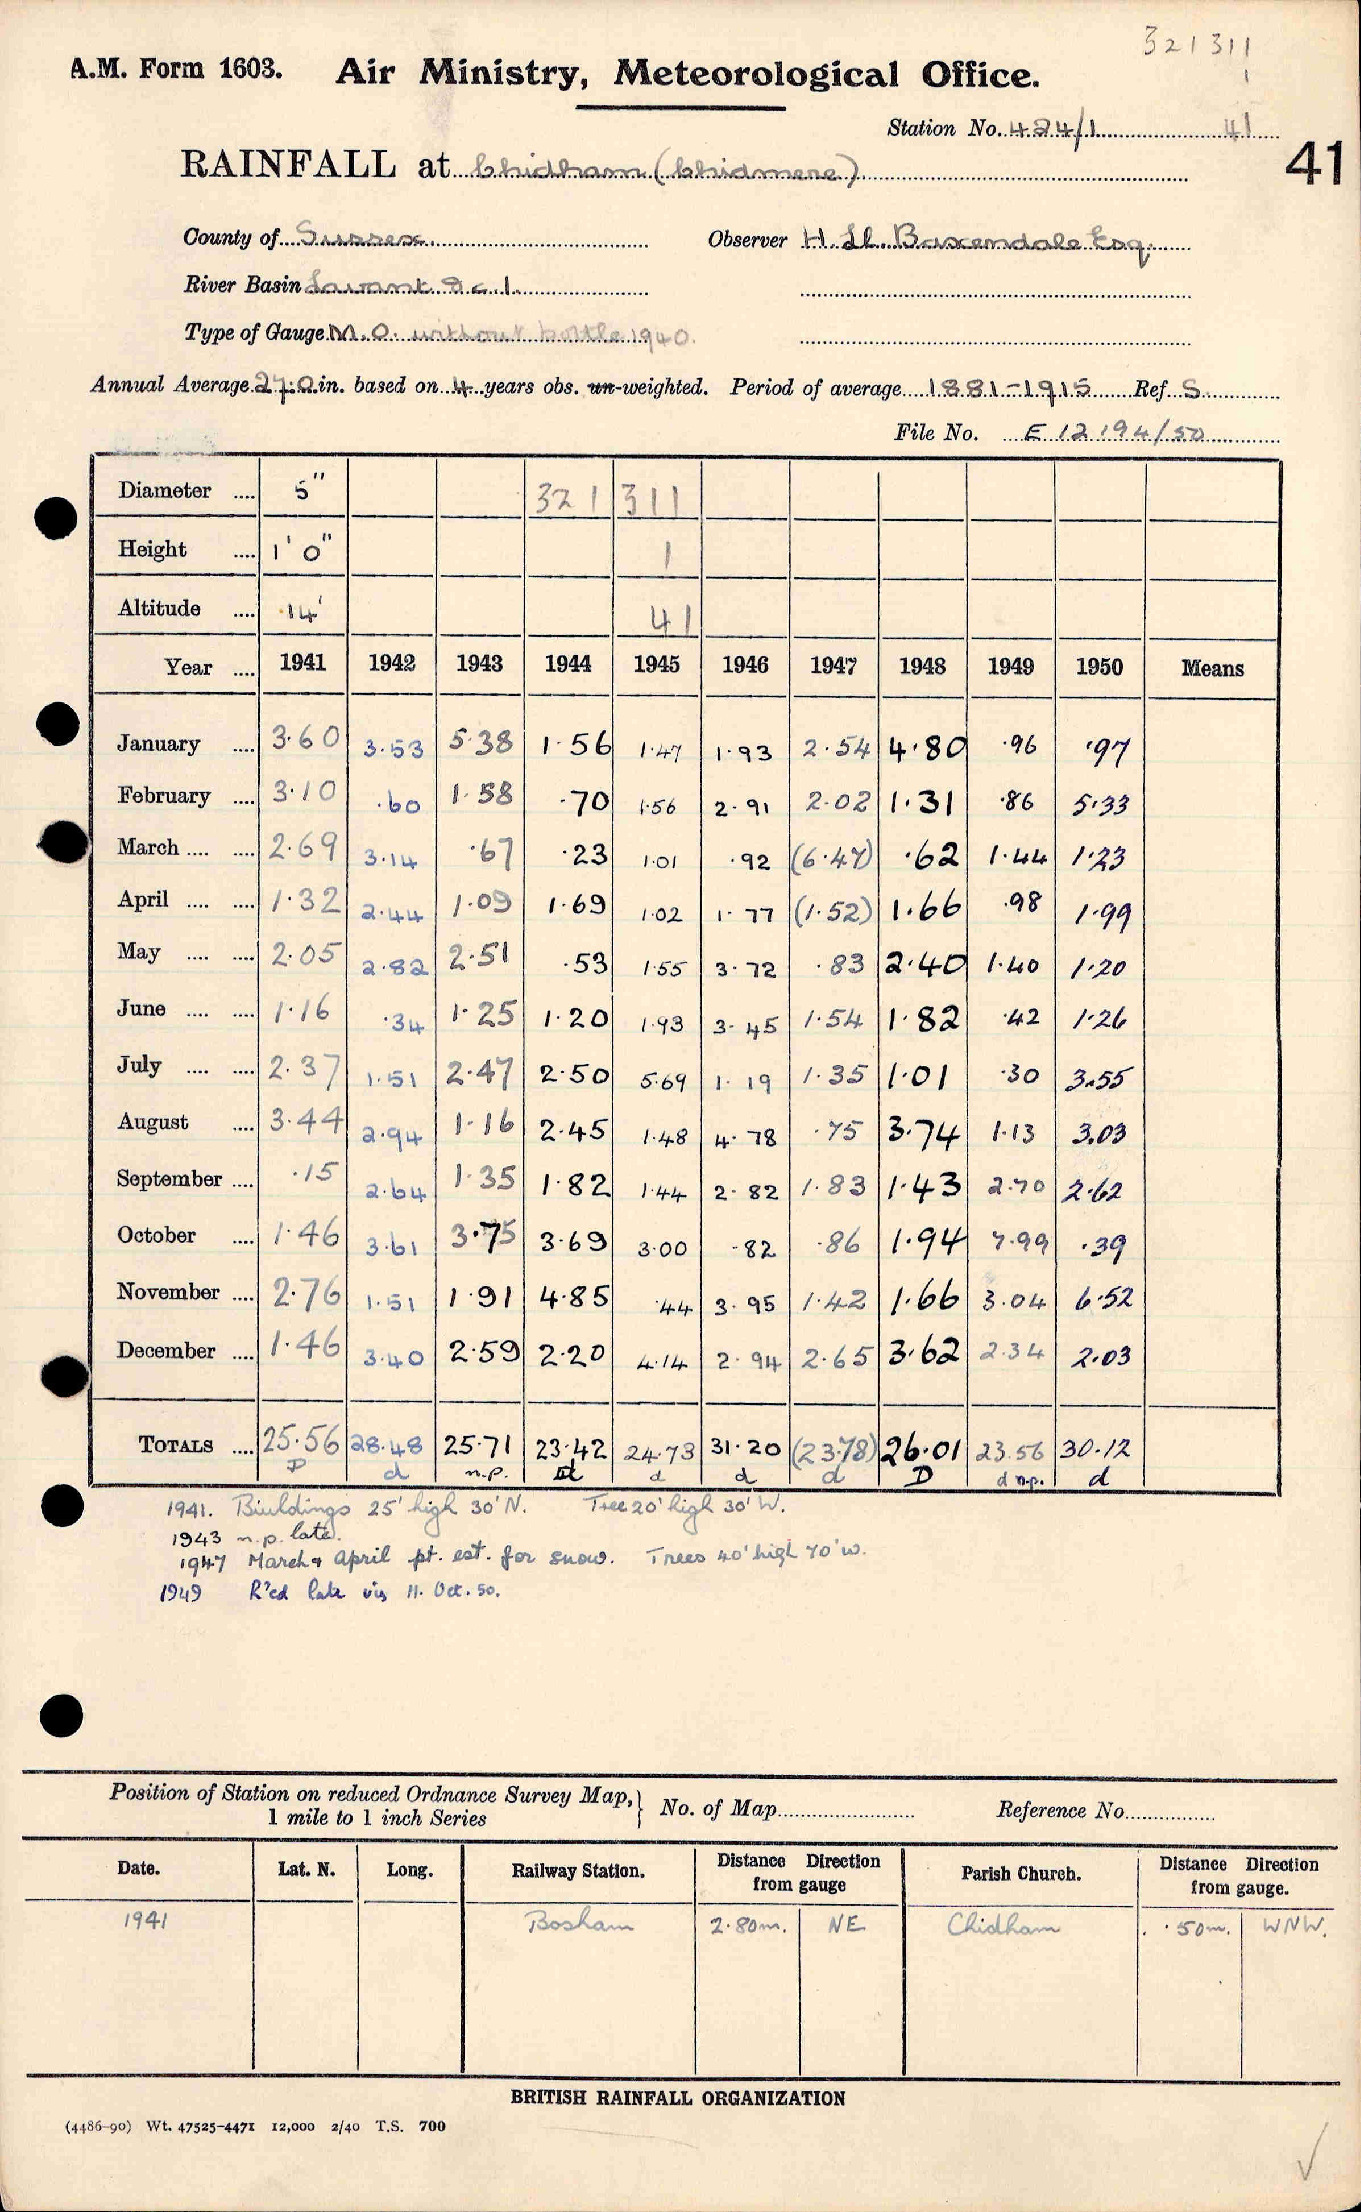 321311
1
A.M. Form 1603. Air Ministry, Meteorological Office.
Station No. 424/1 41
41
RAINFALL at Chidham (Chidmere)
County of Sussex Observer H. Ll. Baxendale Esq.
River Basin Lavant &c 1.
Type of Gauge M.O. without bottle 1940.
Annual Average 27.0 in. based on 4 years obs. un-weighted. Period of average 1881-1915 Ref S.
File No. E 12194/50
Diameter .... 5" 321 311
Height .... 1' 0" 1
Altitude .... 14' 41
Year .... 1941 1942 1943 1944 1945 1946 1947 1948 1949 1950 Means
January .... 3.60 3.53 5.38 1.56 1.47 1.93 2.54 4.80 .96 .97
February .... 3.10 .60 1.58 .70 1.56 2.91 2.02 1.31 .86 5.33
March .... .... 2.69 3.14 .67 .23 1.01 .92 (6.47) .62 1.44 1.23
April .... .... 1.32 2.44 1.09 1.69 1.02 1.77 (1.52) 1.66 .98 1.99
May .... .... 2.05 2.82 2.51 .53 1.55 3.72 .83 2.40 1.40 1.20
June .... .... 1.16 .34 1.25 1.20 1.93 3.45 1.54 1.82 .42 1.26
July .... .... 2.37 1.51 2.47 2.50 5.69 1.19 1.35 1.01 .30 3.55
August .... 3.44 2.94 1.16 2.45 1.48 4.78 .75 3.74 1.13 3.03
September .... .15 2.64 1.35 1.82 1.44 2.82 1.83 1.43 2.70 2.62
October .... 1.46 3.61 3.75 3.69 3.00 .82 .86 1.94 7.99 .39
November .... 2.76 1.51 1.91 4.85 .44 3.95 1.42 1.66 3.04 6.52
December .... 1.46 3.40 2.59 2.20 4.14 2.94 2.65 3.62 2.34 2.03
TOTALS .... 25.56 28.48 25.71 23.42 24.73 31.20 (23.78) 26.01 23.56 30.12
D d n.p. d d d D d n.p. d
1941. Buildings 25' high 30' N. Tree 20' high 30' W.
1943 n.p. late.
1947 March & April pt. est. for snow. Trees 40' high 70' W.
1949 R'ed late 11. Oct. 50.
Position of Station on reduced Ordnance Survey Map,
1 mile to 1 inch Series
No. of Map Reference No.
Date. Lat. N. Long. Railway Station. Distance Direction from gauge Parish Church. Distance Direction from gauge.
1941 Bosham 2.80m. NE Chidham .50m. WNW.
BRITISH RAINFALL ORGANIZATION
(4486-90) Wt. 47525-4471 12,000 2/40 T.S. 700